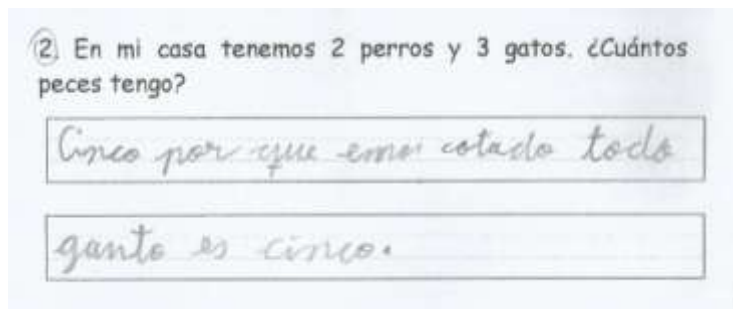 2. En mi casa tenemos 2 perros y 3 gatos. ¿Cuántos
peces tengo?
Cinco por que emos cotado todo
ganto es cinco.